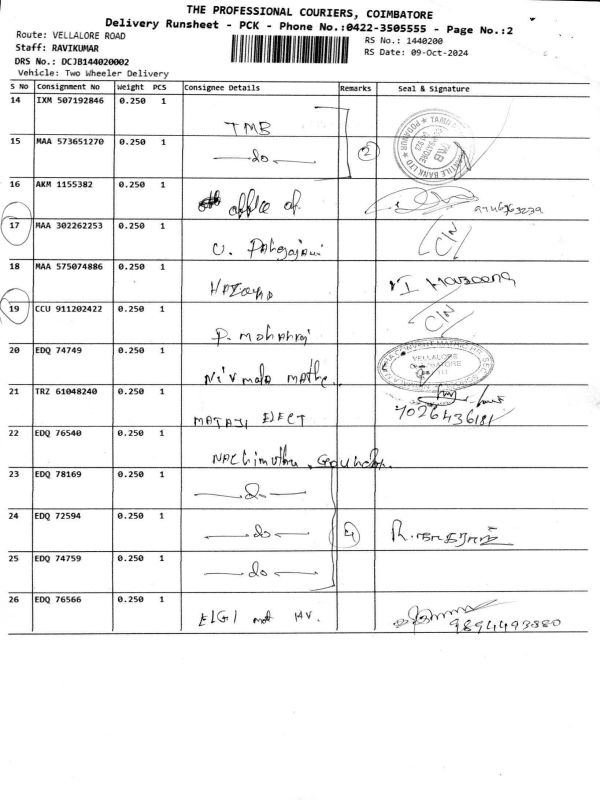 THE PROFESSIONAL COURIERS, COIMBATORE
Delivery Runsheet - PCK - Phone No.:0422-3505555 - Page No.:2
Route: VELLALORE ROAD
RS No.: 1440200
Staff: RAVIKUMAR
RS Date: 09-Oct-2024
DRS No.: DCJB144020002
Vehicle: Two Wheeler Delivery
S No Consignment No Weight PCS Consignee Details Remarks Seal & Signature
14 IXM 507192846 0.250 1 TMB
15 MAA 573651270 0.250 1 —do— 2
16 AKM 1155382 0.250 1 office of
17 MAA 302262253 0.250 1 C/N
18 MAA 575074886 0.250 1
19 CCU 911202422 0.250 1 P. mohanraj C/N
20 EDQ 74749 0.250 1 Nirmala mathe.. VELLALORE
21 TRZ 61048240 0.250 1 MATAJI ELECT 7026436181
22 EDQ 76540 0.250 1 Nachimuthu. Gounder.
23 EDQ 78169 0.250 1 —do—
24 EDQ 72594 0.250 1 —do— 4
25 EDQ 74759 0.250 1 —do—
26 EDQ 76566 0.250 1 ELGI HV. 9894493880